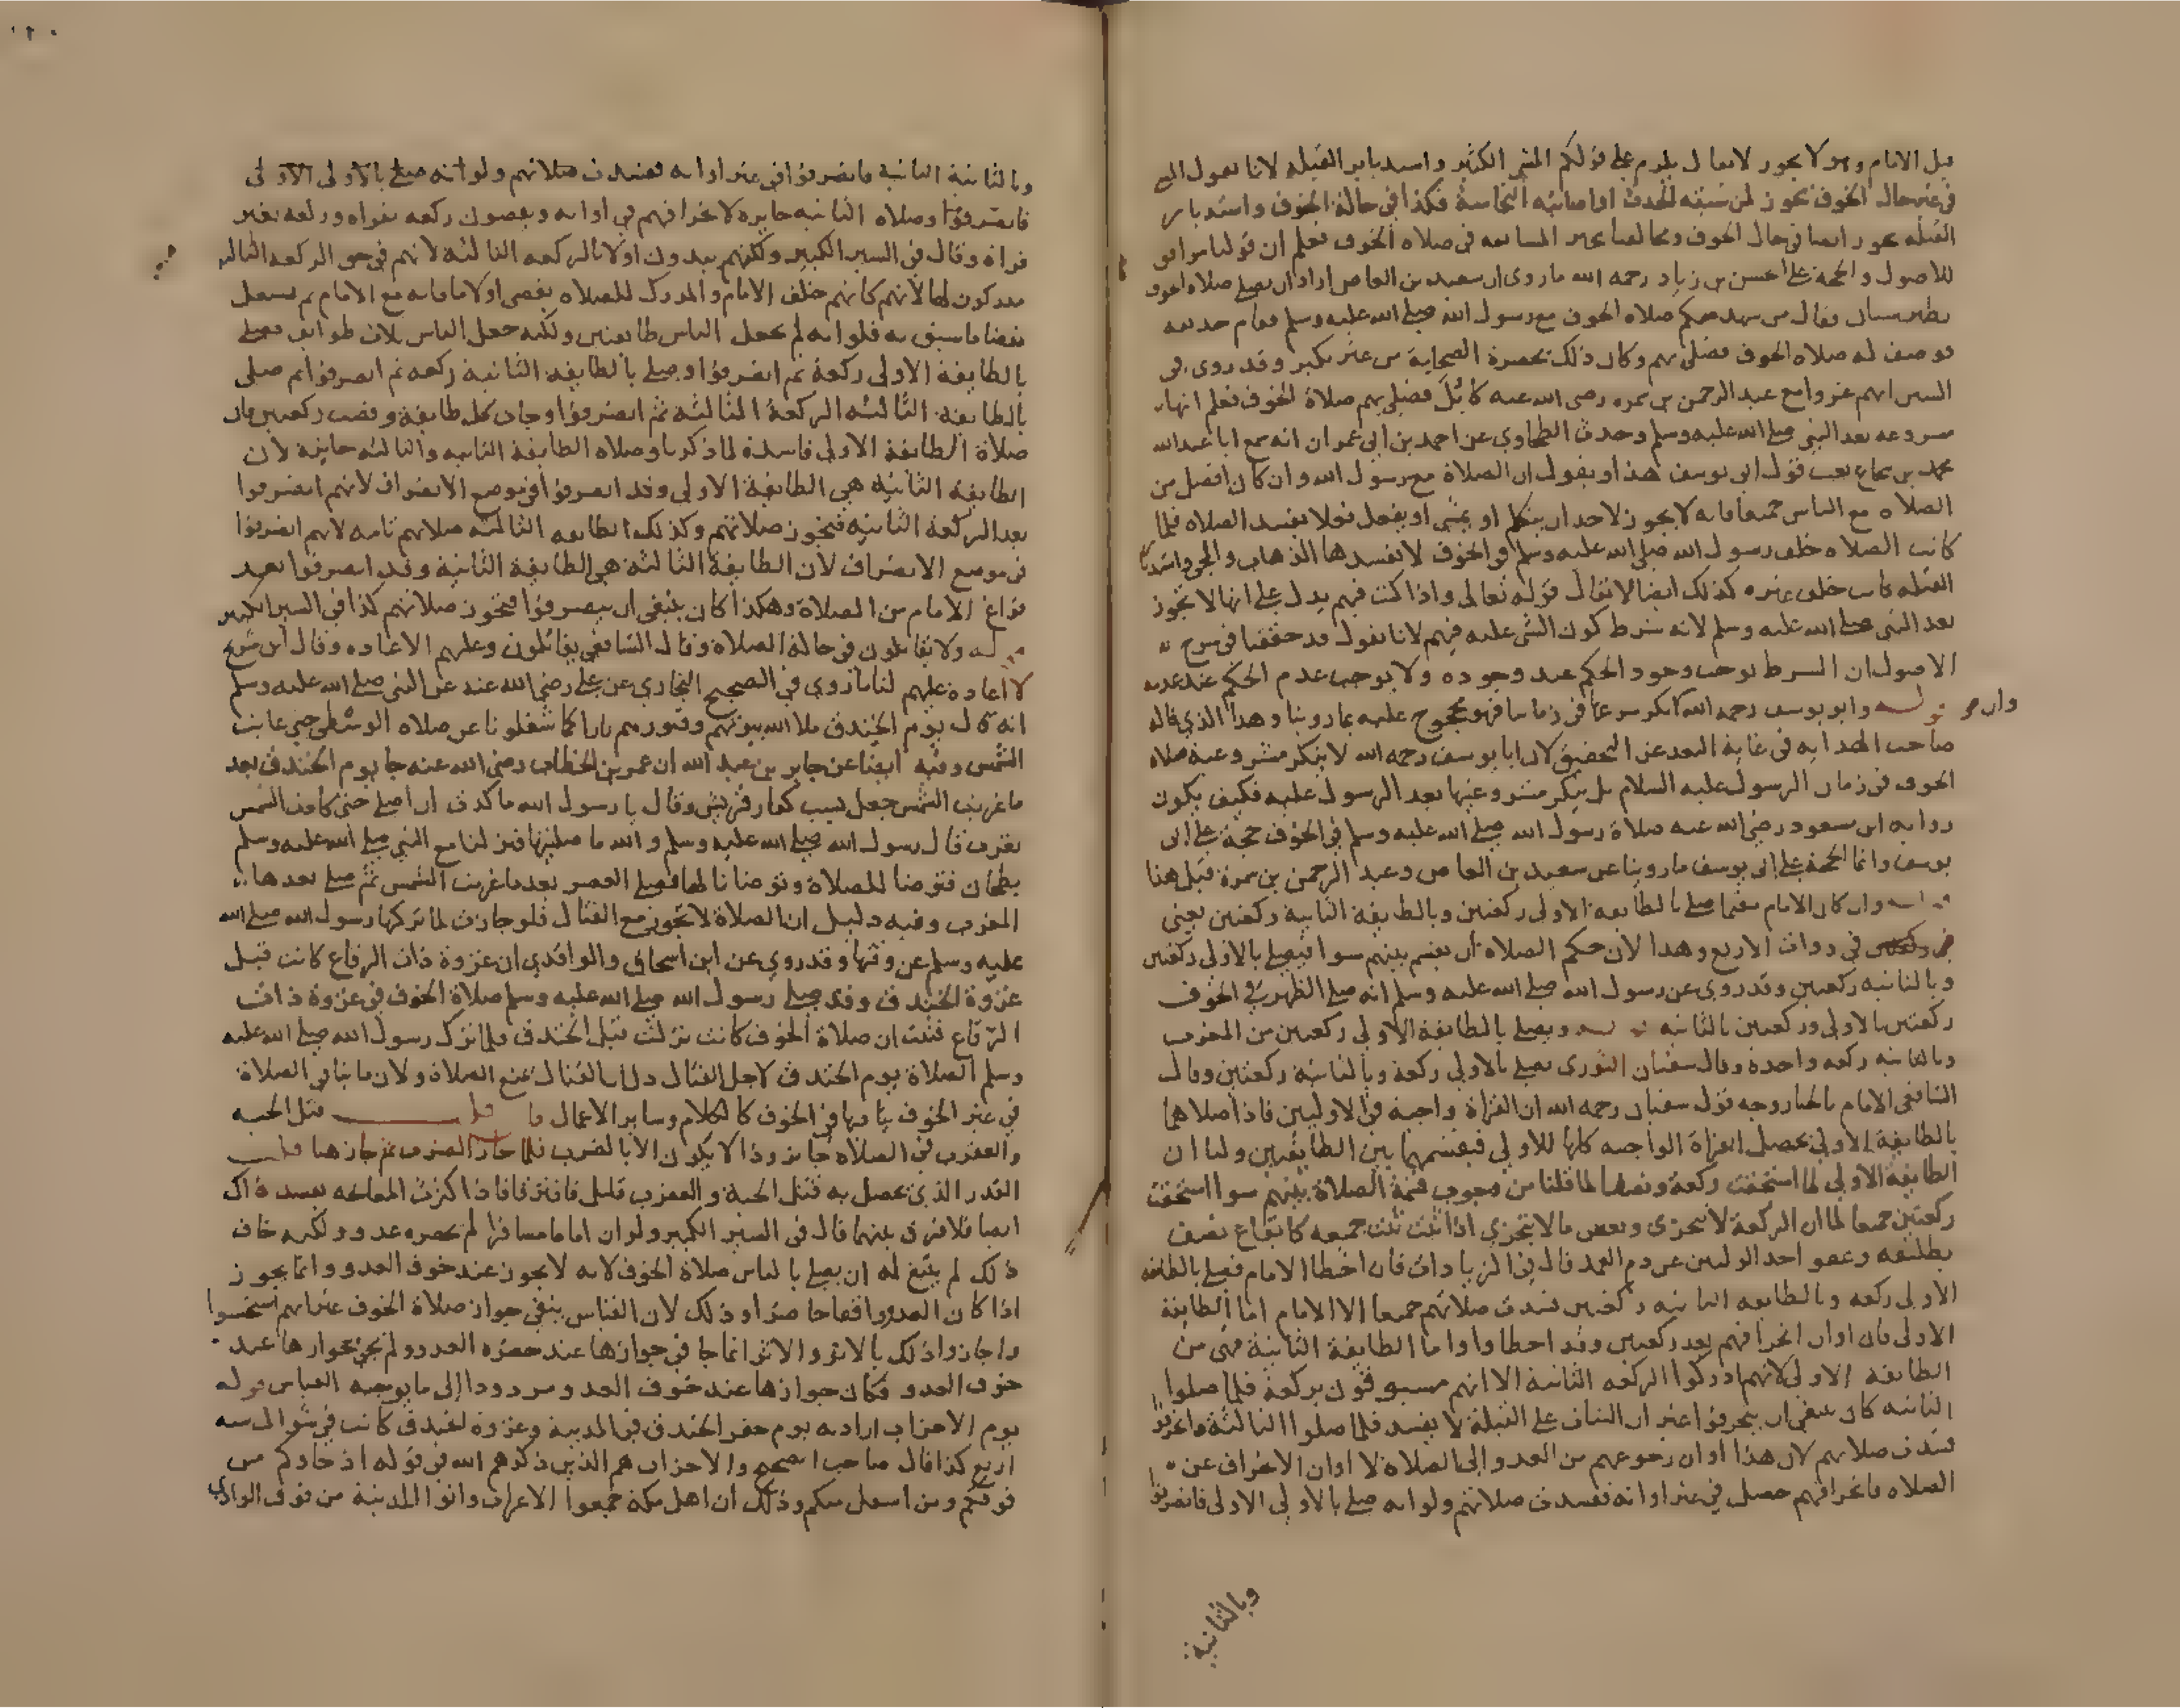 قبل الامام وهو لا يجوز لا يقال يلزم على قولكم المشي الكثير واستدبار القبلة لانا نقول المشي
في غير حال الخوف يجوز لمن سبقه الحدث او اصابته النجاسة فكذا في حالة الخوف واستدبار
القبلة يجوز ايضا في حال الخوف في صلاة الخوف فعلم ان قولنا موافق
للاصول والحجة على الحسن بن زياد رحمه الله ما روي ان سعيد بن العاص اراد ان يصلي صلاة الخوف
فقال من شهد منكم صلاة الخوف مع رسول الله صلى الله عليه وسلم فقام حذيفة
فوصف له صلاة الخوف فصلى بهم وكان ذلك بحضرة الصحابة من غير نكير وقد روي في
السنن انهم غزوا مع عبد الرحمن بن سمرة رضي الله عنه كابل فصلى بهم صلاة الخوف فعلم انها
مشروعة بعد النبي صلى الله عليه وسلم وحدث الطحاوي عن احمد بن ابي عمران انه سمع ابا عبد الله
محمد بن شجاع يعيب قول ابي يوسف هذا ويقول ان الصلاة مع رسول الله وان كان افضل من
الصلاة مع الناس جميعا فانه لا يجوز لاحد ان يتكلم او يمشي او يفعل فعلا يفسد الصلاة فلما
كانت الصلاة خلف رسول الله صلى الله عليه وسلم في الخوف لا يفسدها الذهاب والمجي واستدبار
القبلة كانت خلف غيره كذلك ايضا لا يقال قوله تعالى واذا كنت فيهم يدل على انها لا تجوز
بعد النبي صلى الله عليه وسلم لانه شرط كون النبي عليه فيهم لانا نقول قد حققنا في شرح
الاصول ان الشرط يوجب وجود الحكم عند وجوده ولا يوجب عدم الحكم عند عدمه
قوله وابو يوسف رحمه الله وان انكر شرعيتها في زماننا فهو محجوج عليه بما روينا وهذا الذي قاله
صاحب الهداية في غاية البعد عن التحقيق لان ابا يوسف رحمه الله لا ينكر مشروعية صلاة
الخوف في زمان الرسول عليه السلام بل ينكر مشروعيتها بعد الرسول عليه فكيف يكون
رواية ابن مسعود رضي الله عنه صلاة رسول الله صلى الله عليه وسلم في الخوف حجة على ابي
يوسف وانما الحجة على ابي يوسف ما روينا عن سعيد بن العاص وعبد الرحمن بن سمرة قبل هذا
قوله وان كان الامام مقيما صلى بالطايفة الاولى ركعتين وبالطايفة الثانية ركعتين يعني
في ذوات الاربع وهذا لان حكم الصلاة ان يقسم بينهم سوا فيصلي بالاولى ركعتين
وبالثانية ركعتين وقد روي عن رسول الله صلى الله عليه وسلم انه صلى الظهر في الخوف
ركعتين بالاولى وركعتين بالثانية قوله ويصلي بالطايفة الاولى ركعتين من المغرب
وبالثانية ركعة واحدة وقال سفيان الثوري يصلي بالاولى ركعة وبالثانية ركعتين وقال
الشافعي الامام بالخيار وجه قول سفيان رحمه الله ان القراة واجبة في الاوليين فاذا صلاهما
بالطايفة الاولى يحصل القراة الواجبة كلها للاولى فيقسمهما بين الطايفتين ولنا ان
الطايفة الاولى لما استحقت ركعة ونصفا لما قلنا من وجوب قسمة الصلاة بينهم سوا استحقت
ركعتين جميعا لما ان الركعة لا تتجزى وبعض ما لا يتجزي اذا ثبت ثبت جميعه كايقاع نصف
تطليقة وعفو احد الوليين عن دم العمد قال في الزيادات فان اخطا الامام فصلى بالطايفة
الاولى ركعة وبالطايفة الثانية ركعتين فسدت صلاتهم جميعا الا الامام اما الطايفة
الاولى فان اوان انحرافهم بعد ركعتين وقد اخطاوا واما الطايفة الثانية فهي من
الطايفة الاولى لانهم ادركوا الركعة الثانية الا انهم مسبوقون بركعة فلما صلوا
الثانية كان ينبغي ان ينحرفوا غير ان الثبات على القبلة لا يفسد فلما صلوا الثالثة وانحرفوا
فسدت صلاتهم لان هذا اوان رجوعهم من العدو الى الصلاة لا اوان الانحراف عن
الصلاة فانحرافهم حصل في غير اوانه ففسدت صلاتهم ولو انه صلى بالاولى الاولى فانصرفوا
وبالثانية
وبالثانية الثانية فانصرفوا في غير اوانه ففسدت صلاتهم ولو انه صلى بالاولى الاولى
فانصرفوا وصلاة الثانية جايزة لانحرافهم في اوانه ويقضون ركعة بقراة وركعة بغير
قراة وقال في السير الكبير ولكنهم يبدون اولا بالركعة الثالثة لانهم في حق الركعة الثالثة
مدركون لها لانهم كانهم خلف الامام والمدرك للصلاة يقضي اولا ما فاته مع الامام ثم يشتغل
بقضا ما سبق به فلو انه لم يجعل الناس طايفتين ولكنه جعل الناس ثلاث طوايف فصلى
بالطايفة الاولى ركعة ثم انصرفوا وصلى بالطايفة الثانية ركعة ثم انصرفوا ثم صلى
بالطايفة الثالثة الركعة الثالثة ثم انصرفوا وجات كل طايفة وقضت ركعتين فان
صلاة الطايفة الاولى فاسدة لما ذكرنا وصلاة الطايفة الثانية والثالثة جايزة لان
الطايفة الثانية هي الطايفة الاولى وقد انصرفوا في موضع الانصراف لانهم انصرفوا
بعد الركعة الثانية فتجوز صلاتهم وكذلك الطايفة الثالثة صلاتهم تامة لانهم انصرفوا
في موضع الانصراف لان الطايفة الثالثة هي الطايفة الثانية وقد انصرفوا بعد
فراغ الامام من الصلاة وهكذا كان ينبغي ان ينصرفوا فتجوز صلاتهم كذا في السير الكبير
قوله ولا يقاتلون في حالة الصلاة وقال الشافعي يقاتلون وعليهم الاعادة وقال ابن شريح
لا اعادة عليهم لنا ما روي في الصحيح البخاري عن علي رضي الله عنه عن النبي صلى الله عليه وسلم
انه قال يوم الخندق ملا الله بيوتهم وقبورهم نارا كما شغلونا عن صلاة الوسطى حتى غابت
الشمس وفيه ايضا عن جابر بن عبد الله ان عمر بن الخطاب رضي الله عنه جا يوم الخندق بعد
ما غربت الشمس جعل يسب كفار قريش وقال يا رسول الله ما كدت ان اصلي حتى كادت الشمس
تغرب قال رسول الله صلى الله عليه وسلم والله ما صليتها فنزلنا مع النبي صلى الله عليه وسلم
بطحان فتوضا للصلاة وتوضانا لها فصلى العصر بعد ما غربت الشمس ثم صلى بعدها
المغرب وفيه دليل ان الصلاة لا تجوز مع القتال فلو جازت لما تركها رسول الله صلى الله
عليه وسلم عن وقتها وقد روي عن ابن اسحاق والواقدي ان غزوة ذات الرقاع كانت قبل
غزوة الخندق وقد صلى رسول الله صلى الله عليه وسلم صلاة الخوف في غزوة ذات
الرقاع فثبت ان صلاة الخوف كانت نزلت قبل الخندق فلما ترك رسول الله صلى الله عليه
وسلم الصلاة يوم الخندق لاجل القتال دل ان القتال يمنع الصلاة ولان ما ينافي الصلاة
في غير الخوف ينافيها في الخوف كالكلام وساير الاعمال فان قلت قتل الحية
والعقرب في الصلاة جايز وذا لا يكون الا بالضرب فلما جاز الضرب ثم جاز هنا قلت
القدر الذي يحصل به قتل الحية والعقرب قليل فافترقا فاذا كثرت المعالجة يفسد ذاك
ايضا فلا فرق بينهما قال في السير الكبير ولو ان اماما مسافرا لم يحضره عدو ولكنه خاف
ذلك لم ينبغ له ان يصلي بالناس صلاة الخوف لانه لا يجوز عند خوف العدو وانما يجوز
اذا كان العدو واقفا حاضرا وذلك لان القياس ينفي جواز صلاة الخوف غير انهم استحسنوا
واجازوا ذلك بالاثر والاثر انما جا في جوازها عند حضرة العدو ولم يجئ بجوازها عند
خوف العدو فكان جوازها عند خوف العدو مردودا الى ما يوجبه القياس قوله
يوم الاحزاب اراد به يوم حفر الخندق في المدينة وغزوة الخندق كانت في شوال سنة
اربع كذا قال صاحب الصحيح والاحزاب هم الذين ذكرهم الله في قوله اذ جاوكم من
فوقكم ومن اسفل منكم وذلك ان اهل مكة جمعوا الاعراب واتوا المدينة من فوق الوادي